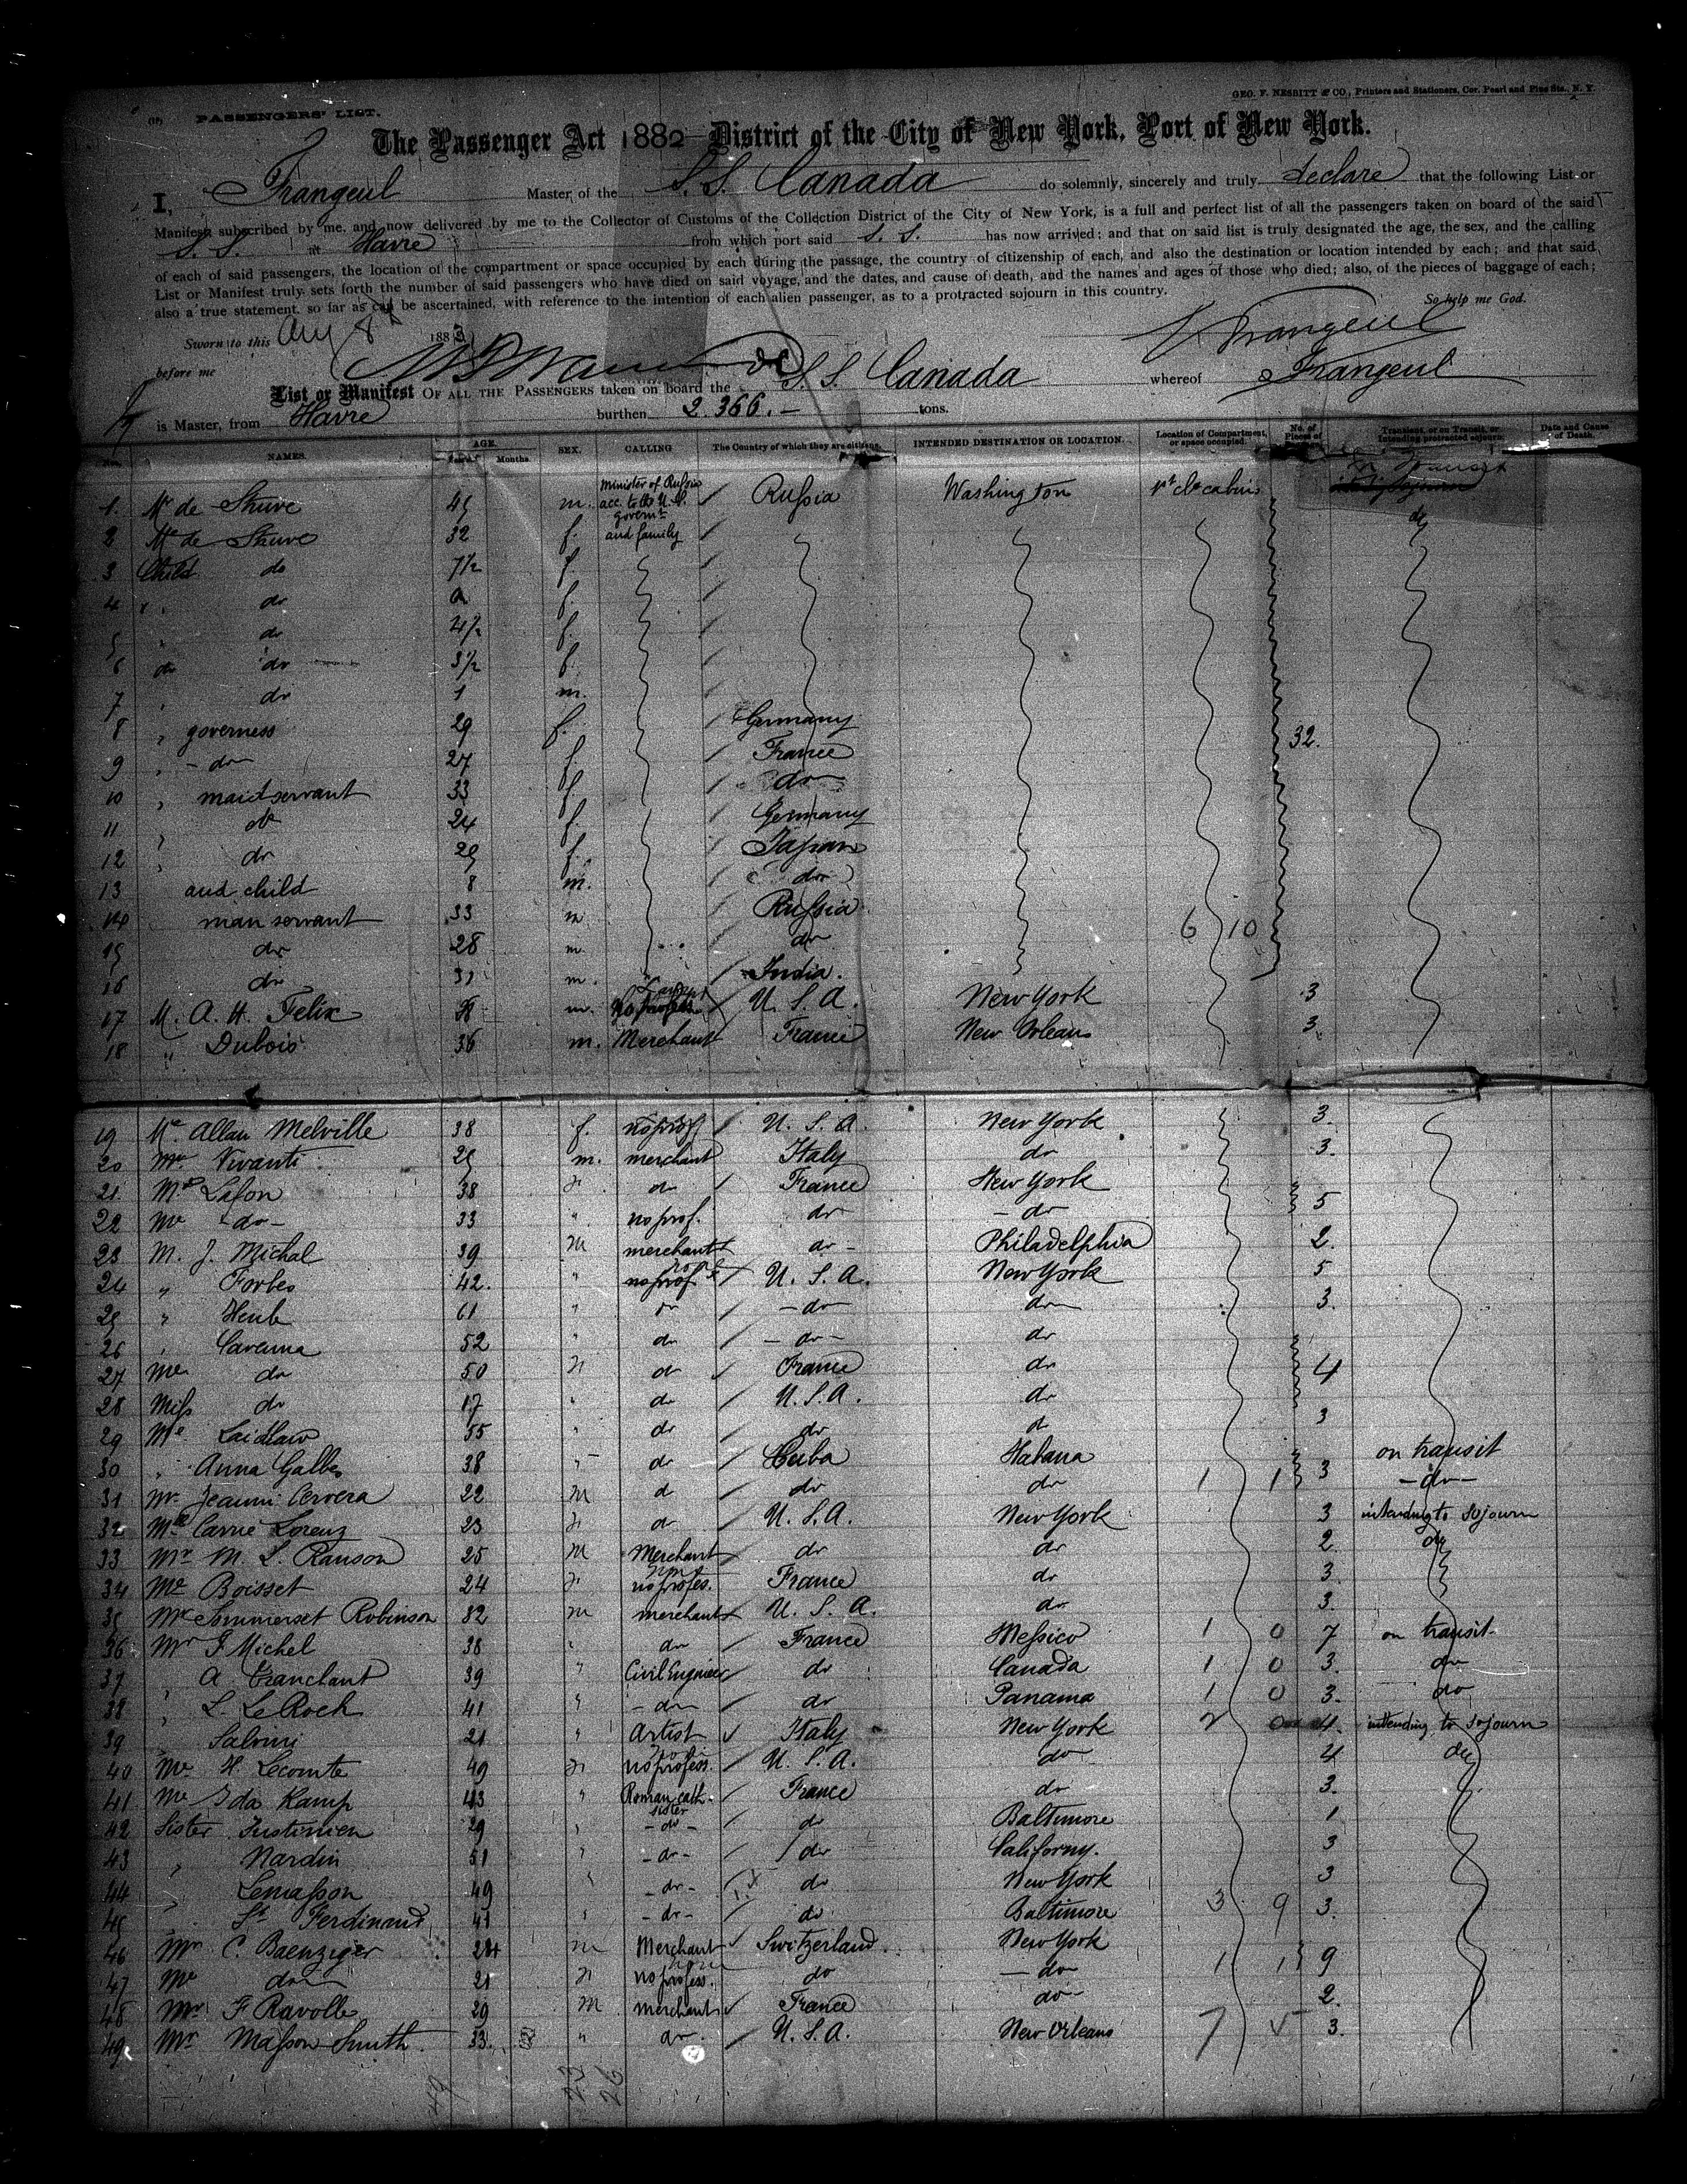 GEO. F. NESBITT & CO., Printers and Stationers, Cor. Pearl and Pine Sts., N. Y.
PASSENGERS' LIST.
The Passenger Act 1882 District of the City of New York, Port of New York.
I, Frangeul Master of the S.S. Canada do solemnly, sincerely and truly declare that the following List or
Manifest subscribed by me, and now delivered by me to the Collector of Customs of the Collection District of the City of New York, is a full and perfect list of all the passengers taken on board of the said
S. S. at Havre from which port said S. S. has now arrived; and that on said list is truly designated the age, the sex, and the calling
of each of said passengers, the location of the compartment or space occupied by each during the passage, the country of citizenship of each, and also the destination or location intended by each; and that said
List or Manifest truly sets forth the number of said passengers who have died on said voyage, and the dates, and cause of death, and the names and ages of those who died; also, of the pieces of baggage of each;
also a true statement, so far as can be ascertained, with reference to the intention of each alien passenger, as to a protracted sojourn in this country. So help me God.
Sworn to this Aug 8 188 Frangeul
before me
List or Manifest OF ALL THE PASSENGERS taken on board the S.S. Canada whereof Frangeul
is Master, from Havre burthen 2.366.- tons.
NAMES. AGE. Years Months. SEX. CALLING The Country of which they are citizens. INTENDED DESTINATION OR LOCATION. Location of Compartment, or space occupied. No. of Pieces of Transient, or on Transit, or Intending protracted sojourn. Date and Cause of Death.
1. Mr de Struve m. minister of Russia acc. to the U.S. governt Russia Washington 1st cl. cabin
2 Me de Struve 32 f. and family do
3 Child do 7½ f
4 do f.
5 do 4½ f.
6 do do 3½ f.
7 do 1 m.
8 governess 29 f. Germany 32.
9 do 27 f. France
10 maid servant 33 f. do
11 do 24 f. Germany
12 do 29 f. Japan
13 and child 8 m. do
14 man servant 33 m Russia 6 10
15 do 28 m. do
16 do 31 m. India.
17 M. A. H. Felix m. U. S. A. New York 3
18 " Dubois 36 m. Merchant France New Orleans 3
19 Me Allan Melville 38 f. no prof. U. S. A. New York 3.
20 Mr Vivanti 29 m. merchant Italy do 3.
21 Mr Lafon 38 do France New York
22 Me do 33 " no prof. do do 5
23 M. J. Michal 39 M merchant do Philadelphia 2.
24 " Forbes 42. " no prof. U. S. A. New York 5
25 " 61 " do do do 3.
26 52 " do do do
27 Me do 50 do France do 4
28 Miss do 17 " do U.S.A. do
29 Me Laidlaw 55 " do do do 3
30 " Anna Galbes 38 do Cuba Habana 3 on transit
31 Mr Cervera 22 M do do do 1 1 do
32 Carrie Lorenz 23 do U.S.A. New York 3 intending to sojourn
33 Mr M. L. Ranson 25 M Merchant do do 2 do
34 Me Boisset 24 no profes. France do 3.
35 Mr Sommerset Robinson 32 m merchant U. S. A. do 3.
36 Mr J Michel 38 do France Messico 1 0 7 on transit
37 " A Tranchant 39 " Civil Engineer do Canada 1 0 3. do
38 " L. Le Roch 41 " do do Panama 1 0 3. do
39 " Salvini 21 " Artist Italy New York 2 0 4. intending to sojourn
40 Me H. Lecomte 49 no profess. U. S. A. do 4 do
41 Me Ida Kamp 43 " Roman cath. sister France do 3.
42 Sister Justinien 29 " do do Baltimore 1
43 " Nardin 51 " do do Californy. 3
44 " Lemasson 49 " do do New York 3
45 " St Ferdinand 41 " do do Baltimore 3 9 3.
46 Mr C. Baenziger m Merchant Switzerland New York
47 Me do 21 no profess. do do 1 1 9
48 Mr F Ravolle 29 M merchant France do 2.
49 Mr Masson Smith 33. " do. U. S. A. New Orleans 7 5 3.
49 23 26